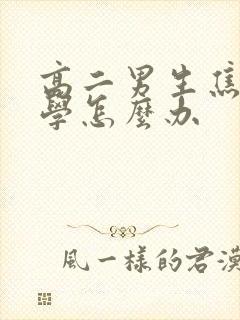 高二男生焦
學怎麼办
風一樣的君漠